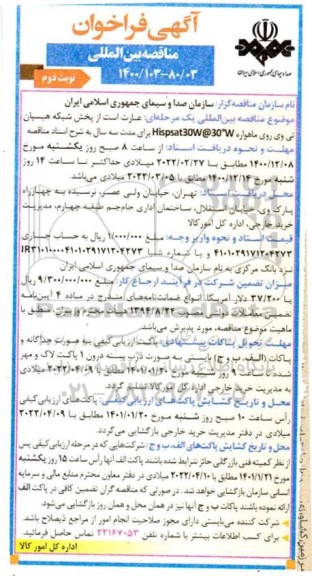 آگهی فراخوان
مناقصه بین‌المللی
۱۴۰۰/۱۰۳-۸۰/۰۳
نوبت دوم
صدا و سیمای جمهوری اسلامی ایران
نام سازمان مناقصه‌گزار: سازمان صدا و سیمای جمهوری اسلامی ایران
موضوع مناقصه بین‌المللی یک مرحله‌ای: عبارت است از پخش شبکه هیسپان
تی وی روی ماهواره Hispsat30W@30°W برای مدت سه سال به شرح اسناد مناقصه
مهلت و نحوه دریافت اسناد: از ساعت ۸ صبح روز یکشنبه مورخ
۱۴۰۰/۱۲/۰۸ مطابق با ۲۰۲۲/۰۲/۲۷ میلادی حداکثر تا ساعت ۱۴ روز
شنبه مورخ ۱۴۰۰/۱۲/۱۴ مطابق با ۲۰۲۲/۰۳/۰۵ میلادی می‌باشد.
محل دریافت اسناد: تهران، خیابان ولی عصر، نرسیده به چهارراه
پارک وی، خیابان استقلال، ساختمان اداری جام‌جم طبقه چهارم، مدیریت
خرید خارجی، اداره کل امور کالا
قیمت اسناد و نحوه واریز وجه: مبلغ ۱/۰۰۰/۰۰۰ ریال به حساب جاری
۴۱۰۱۰۲۹۱۷۱۲۰۴۲۷۳ و یا شماره شبا
نزد بانک مرکزی به نام سازمان صدا و سیمای جمهوری اسلامی ایران
میزان تضمین شرکت در فرآیند ارجاع کار: مبلغ ۹/۳۰۰/۰۰۰/۰۰۰ ریال
یا ۳۷/۲۰۰ دلار آمریکا. انواع ضمانت‌نامه‌های مندرج در ماده ۴ آیین‌نامه
تضمین معاملات دولتی مصوب ۱۳۹۴/۸/۲۲ هیات محترم وزیران منطبق با
ماهیت موضوع مناقصه، مورد پذیرش می‌باشد.
مهلت تحویل پاکات پیشنهادی: پاکت ارزیابی کیفی به صورت جداگانه و
پاکات (الف، ب و ج) بایستی به صورت درب بسته درون ۱ پاکت لاک و مهر
شده تا ساعت ۹ صبح روز شنبه مورخ ۱۴۰۱/۰۱/۲۰ مطابق با ۲۰۲۲/۰۴/۰۹ میلادی
به مدیریت خرید خارجی اداره کل امور کالا تحویل گردد.
محل و تاریخ گشایش پاکت‌های ارزیابی کیفی: پاکت‌های ارزیابی کیفی
رأس ساعت ۱۰ صبح روز شنبه مورخ ۱۴۰۱/۰۱/۲۰ مطابق با ۲۰۲۲/۰۴/۰۹
میلادی در دفتر مدیریت خرید خارجی بازگشایی می‌گردد.
محل و تاریخ گشایش پاکت‌های الف، ب و ج: شرکت‌هایی که در مرحله ارزیابی کیفی پس
از نظر کمیته فنی بازرگانی حائز شرایط شده باشند پاکت آنها رأس ساعت ۱۵ روز یکشنبه
مورخ ۱۴۰۱/۱/۲۱ مطابق با ۲۰۲۲/۰۴/۱۰ میلادی در دفتر معاون محترم منابع مالی و سرمایه
انسانی سازمان بازگشایی خواهد شد. در صورتی که مناقصه گران تضمین کافی در پاکت الف
ارائه نموده باشند پاکات ب و ج آنها نیز در همان محل و همان روز بازگشایی می‌شود.
شرکت کننده می‌بایستی دارای مجوز صلاحیت انجام امور از مراجع ذیصلاح باشد.
برای کسب اطلاعات بیشتر با شماره تلفن ۲۲۱۶۷۰۵۳ تماس حاصل فرمائید.
اداره کل امور کالا